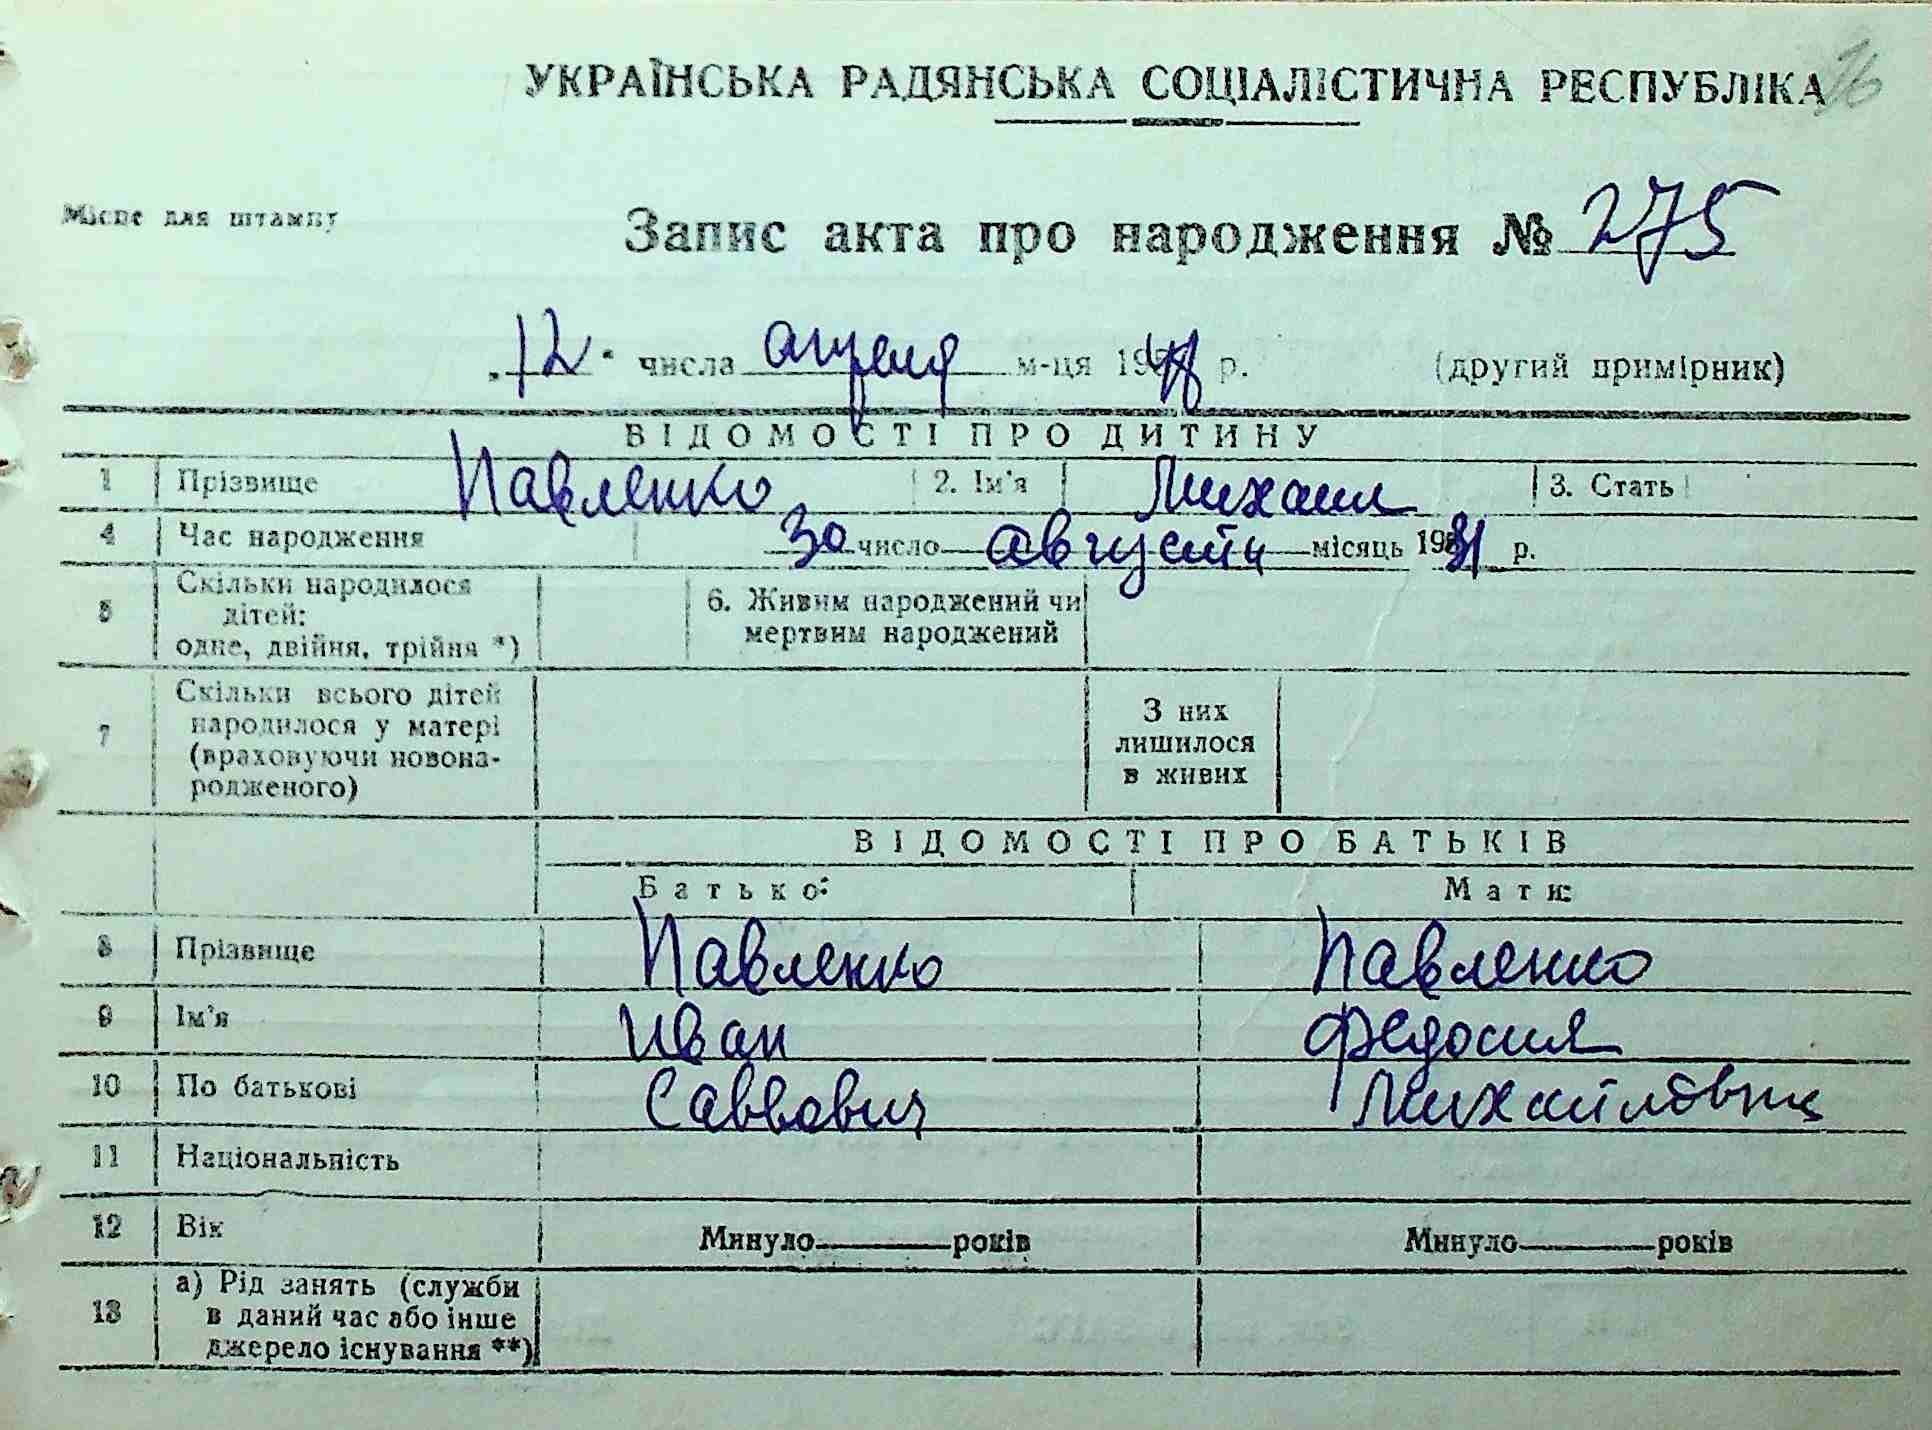 УКРАЇНСЬКА РАДЯНСЬКА СОЦІАЛІСТИЧНА РЕСПУБЛІКА
Місце для штампу
Запис акта про народження № 275
„12“ числа апреля м-ця 19 р. (другий примірник)
ВІДОМОСТІ ПРО ДИТИНУ
1 Прізвище Павленко 2. Ім'я Михаил 3. Стать
4 Час народження 30 число августа місяць 1931 р.
5 Скільки народилося дітей: одне, двійня, трійня *) 6. Живим народжений чи мертвим народжений
7 Скільки всього дітей народилося у матері (враховуючи новонародженого) З них лишилося в живих
ВІДОМОСТІ ПРО БАТЬКІВ
Батько: Мати:
8 Прізвище Павленко Павленко
9 Ім'я Иван Федосия
10 По батькові Саввович Михайловна
11 Національність
12 Вік Минуло років Минуло років
13 а) Рід занять (служби в даний час або інше джерело існування **)